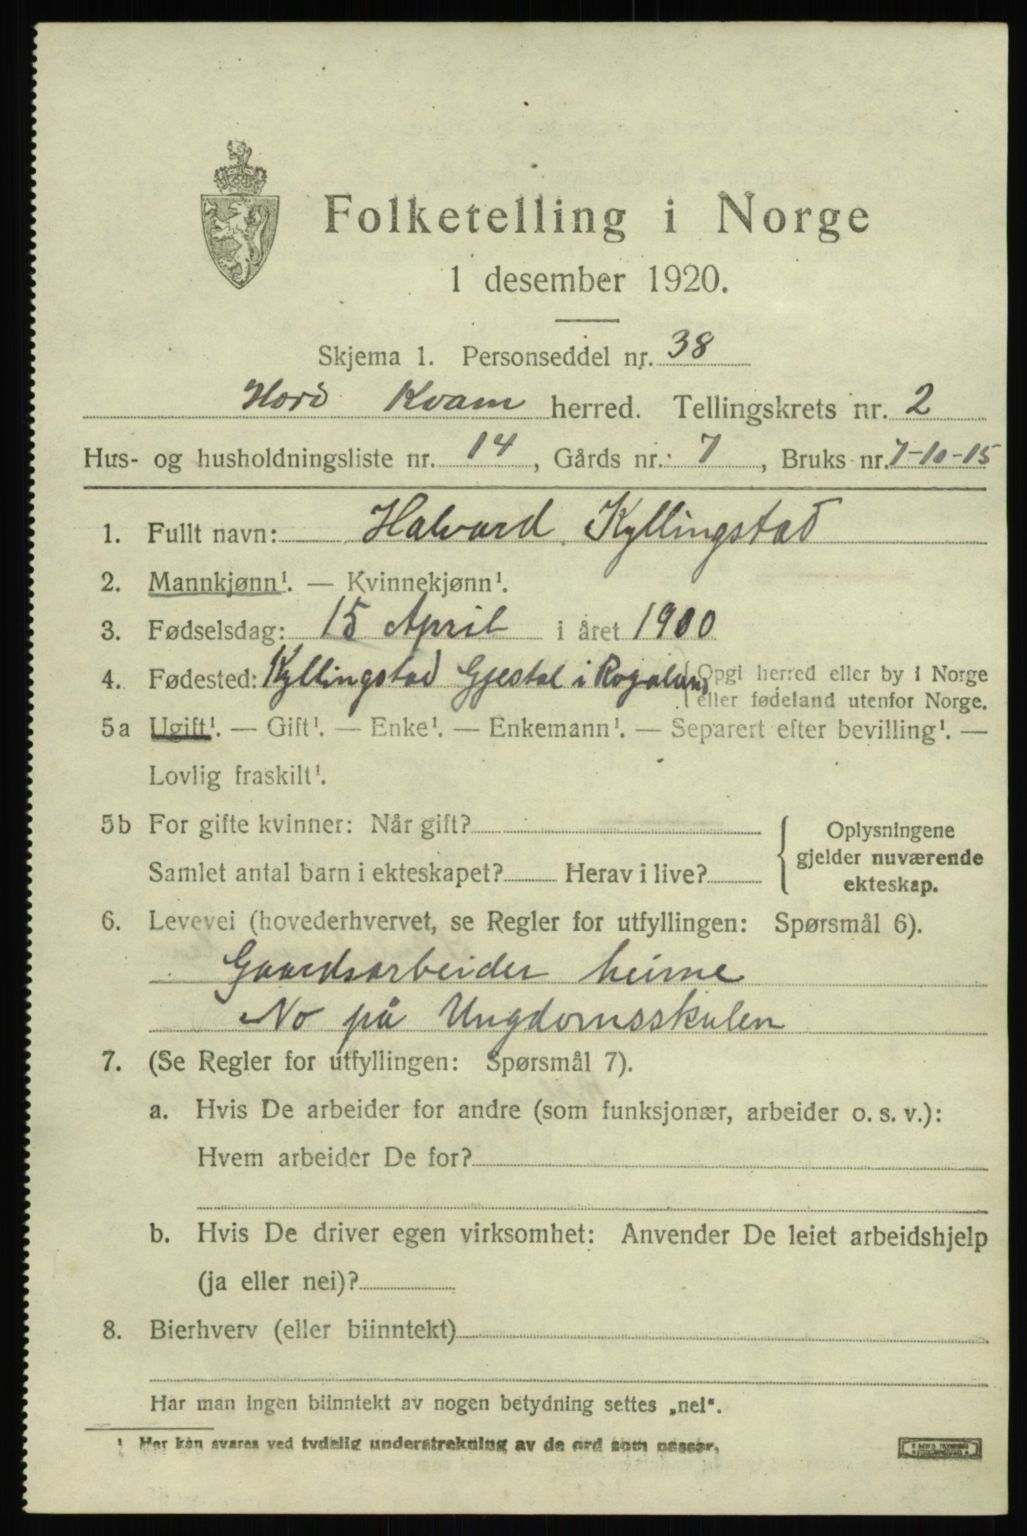 Folketelling i Norge
1 desember 1920.
Skjema 1. Personseddel nr. 38
Hord Kvam herred. Tellingskrets nr. 2
Hus- og husholdningsliste nr. 14, Gårds nr. 7, Bruks nr. 7-10-15
1. Fullt navn: Halvard Kyllingstad
2. Mannkjønn¹. — Kvinnekjønn¹.
3. Fødselsdag: 15 April i året 1900
4. Fødested: Kyllingstad Gjestal i Rogaland (Opgi herred eller by i Norge
eller fødeland utenfor Norge.
5a Ugift¹. — Gift¹. — Enke¹. — Enkemann¹. — Separert efter bevilling¹. —
Lovlig fraskilt¹.
5b For gifte kvinner: Når gift?
Samlet antal barn i ekteskapet? Herav i live?
Oplysningene
gjelder nuværende
ekteskap.
6. Levevei (hovederhvervet, se Regler for utfyllingen: Spørsmål 6).
Gaardsarbeider heime
No på Ungdomsskulen
7. (Se Regler for utfyllingen: Spørsmål 7).
a. Hvis De arbeider for andre (som funksjonær, arbeider o. s. v.):
Hvem arbeider De for?
b. Hvis De driver egen virksomhet: Anvender De leiet arbeidshjelp
(ja eller nei)?
8. Bierhverv (eller biinntekt)
Har man ingen biinntekt av nogen betydning settes „nei“.
¹ Her kan svares ved tydelig understrekning av de ord som passer.